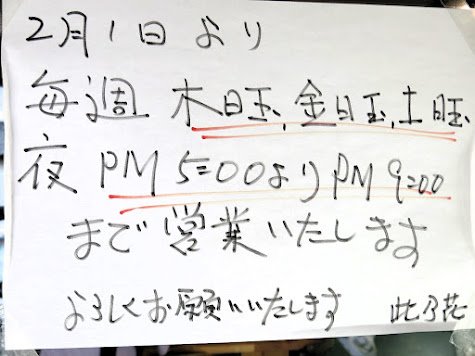 2月1日より
毎週 木曜,金曜,土曜
夜 PM 5:00よりPM 9:00
まで営業いたします
よろしくお願いいたします 此乃花